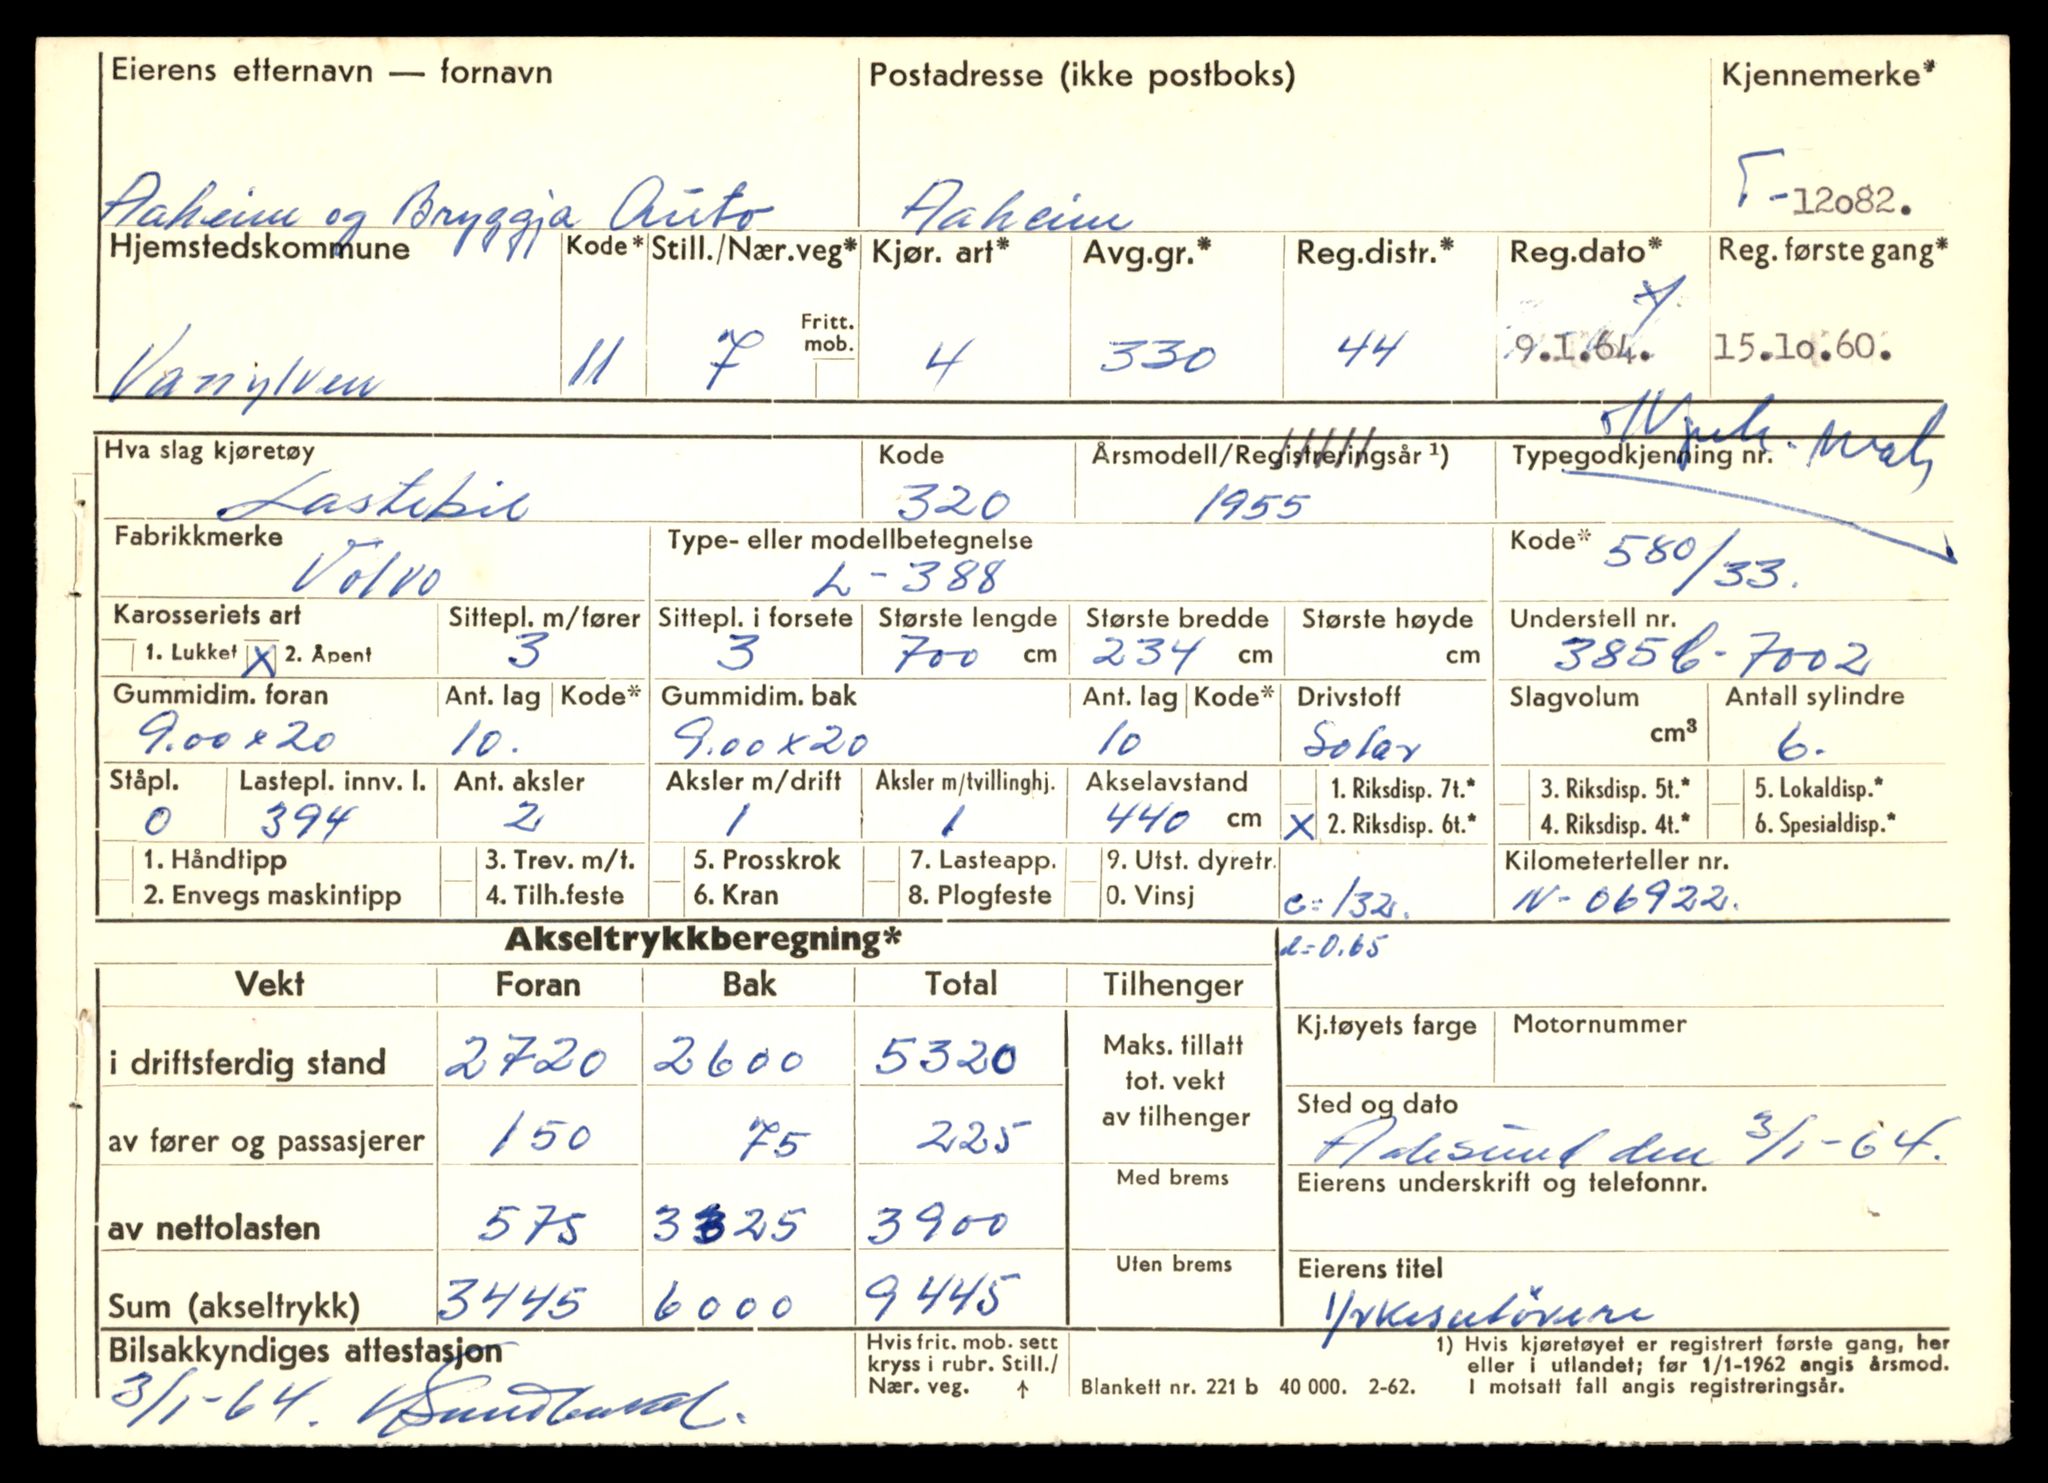 Eierens etternavn — fornavn Postadresse (ikke postboks) Kjennemerke*
Aaheim og Bryggja Auto Aaheim T-12082.
Hjemstedskommune Kode* Still./Nær.veg* Kjør. art* Avg.gr.* Reg.distr.* Reg.dato* Reg. første gang*
Fritt. mob.
Vanylven 11 7 4 330 44 9.1.64. 15.10.60.
Hva slag kjøretøy Kode Årsmodell/Registreringsår ¹) Typegodkjenning nr.
Lastebil 320 1955
Fabrikkmerke Type- eller modellbetegnelse Kode* 580/33.
Volvo L-388
Karosseriets art Sittepl. m/fører Sittepl. i forsete Største lengde Største bredde Største høyde Understell nr.
1. Lukket X 2. Åpent 3 3 700 cm 234 cm cm 3856-7002
Gummidim. foran Ant. lag Kode* Gummidim. bak Ant. lag Kode* Drivstoff Slagvolum Antall sylindre
9.00x20 10. 9.00x20 10 Solar cm³ 6.
Ståpl. Lastepl. innv. l. Ant. aksler Aksler m/drift Aksler m/tvillinghj. Akselavstand 1. Riksdisp. 7t.* 3. Riksdisp. 5t.* 5. Lokaldisp.*
0 394 2 1 1 440 cm X 2. Riksdisp. 6t.* 4. Riksdisp. 4t.* 6. Spesialdisp.*
1. Håndtipp 3. Trev. m/t. 5. Prosskrok 7. Lasteapp. 9. Utst. dyretr. Kilometerteller nr.
2. Envegs maskintipp 4. Tilh.feste 6. Kran 8. Plogfeste 0. Vinsj c=132. N-06922.
Akseltrykkberegning* d=0.65
Vekt Foran Bak Total Tilhenger
Kj.tøyets farge Motornummer
i driftsferdig stand 2720 2600 5320 Maks. tillatt
tot. vekt
av tilhenger
Sted og dato
av fører og passasjerer 150 75 225 Aalesund den 3/1-64.
Med brems Eierens underskrift og telefonnr.
av nettolasten 575 3325 3900
Uten brems Eierens titel
Sum (akseltrykk) 3445 6000 9445 Yrkesutövere
Bilsakkyndiges attestasjon
3/1-64.
Hvis frit. mob. sett
kryss i rubr. Still./
Nær. veg. ↑
Blankett nr. 221 b 40 000. 2-62.
1) Hvis kjøretøyet er registrert første gang, her
eller i utlandet; før 1/1-1962 angis årsmod.
I motsatt fall angis registreringsår.